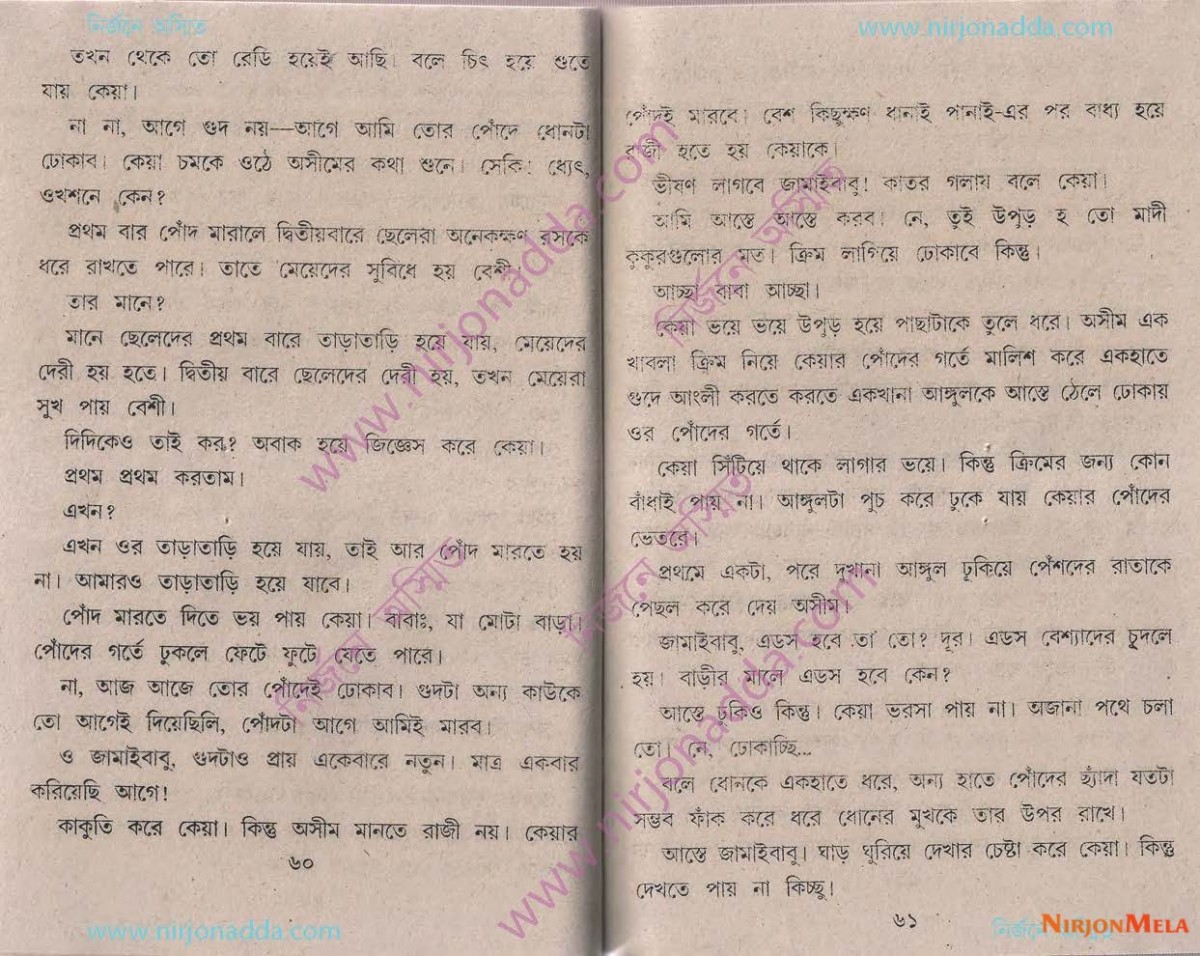 নির্জনে অস্মিত
www.nirjonadda.com
তখন থেকে তো রেডি হয়েই আছি। বলে চিৎ হয়ে শুতে
যায় কেয়া।
না না, আগে গুদ নয়—আগে আমি তোর পোঁদে ধোনটা
ঢোকাব। কেয়া চমকে ওঠে অসীমের কথা শুনে। সেকি! ধ্যেৎ,
ওখশনে কেন?
প্রথম বার পোঁদ মারালে দ্বিতীয়বারে ছেলেরা অনেকক্ষণ রসকে
ধরে রাখতে পারে। তাতে মেয়েদের সুবিধে হয় বেশী।
তার মানে?
মানে ছেলেদের প্রথম বারে তাড়াতাড়ি হয়ে যায়, মেয়েদের
দেরী হয় হতে। দ্বিতীয় বারে ছেলেদের দেরী হয়, তখন মেয়েরা
সুখ পায় বেশী।
দিদিকেও তাই কর? অবাক হয়ে জিজ্ঞেস করে কেয়া।
প্রথম প্রথম করতাম।
এখন?
এখন ওর তাড়াতাড়ি হয়ে যায়, তাই আর পোঁদ মারতে হয়
না। আমারও তাড়াতাড়ি হয়ে যাবে।
পোঁদ মারতে দিতে ভয় পায় কেয়া। বাবাঃ, যা মোটা বাড়া।
পোঁদের গর্তে ঢুকলে ফেটে ফুটে যেতে পারে।
না, আজ আজে তোর পোঁদেই ঢোকাব। গুদটা অন্য কাউকে
তো আগেই দিয়েছিলি, পোঁদটা আগে আমিই মারব।
ও জামাইবাবু, গুদটাও প্রায় একেবারে নতুন। মাত্র একবার
করিয়েছি আগে!
কাকুতি করে কেয়া। কিন্তু অসীম মানতে রাজী নয়। কেয়ার
৬০
www.nirjonadda.com
পোঁদই মারবে। বেশ কিছুক্ষণ ধানাই পানাই-এর পর বাধ্য হয়ে
রাজী হতে হয় কেয়াকে।
ভীষণ লাগবে জামাইবাবু! কাতর গলায় বলে কেয়া।
আমি আস্তে আস্তে করব। নে, তুই উপুড় হ তো মাদী
কুকুরগুলোর মত। ক্রিম লাগিয়ে ঢোকাবে কিন্তু।
আচ্ছা বাবা আচ্ছা।
কেয়া ভয়ে ভয়ে উপুড় হয়ে পাছাটাকে তুলে ধরে। অসীম এক
খাবলা ক্রিম নিয়ে কেয়ার পোঁদের গর্তে মালিশ করে একহাতে
গুদে আংলী করতে করতে একখানা আঙ্গুলকে আস্তে ঠেলে ঢোকায়
ওর পোঁদের গর্তে।
কেয়া সিঁটিয়ে থাকে লাগার ভয়ে। কিন্তু ক্রিমের জন্য কোন
বাঁধাই পায় না। আঙ্গুলটা পুচ করে ঢুকে যায় কেয়ার পোঁদের
ভেতরে।
প্রথমে একটা, পরে দুখানা আঙ্গুল ঢুকিয়ে পোঁশদের রাতাকে
পেছল করে দেয় অসীম।
জামাইবাবু, এডস হবে না তো? দূর। এডস বেশ্যাদের চুদলে
হয়। বাড়ীর মালে এডস হবে কেন?
আস্তে ঢুকিও কিন্তু। কেয়া ভরসা পায় না। অজানা পথে চলা
তো। নে, ঢোকাচ্ছি...
বলে ধোনকে একহাতে ধরে, অন্য হাতে পোঁদের ছ্যাঁদা যতটা
সম্ভব ফাঁক করে ধরে ধোনের মুখকে তার উপর রাখে।
আস্তে জামাইবাবু। ঘাড় ঘুরিয়ে দেখার চেষ্টা করে কেয়া। কিন্তু
দেখতে পায় না কিচ্ছু!
৬১
NIRJONMELA